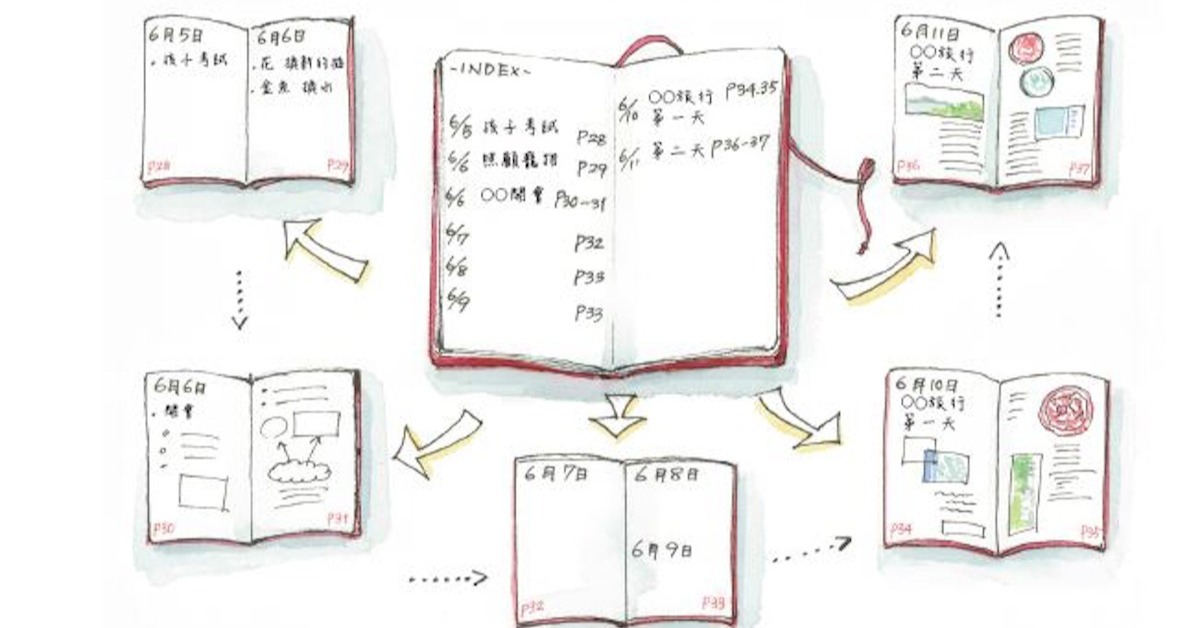 6月5日
・孩子考試
P28
6月6日
・花 換新的植
・金魚 換水
P29
-INDEX-
6/5 孩子考試 P28
6/6 照顧寵物 P29
6/6 〇〇開會 P30-31
6/7 P32
6/8 P33
6/9 P33
6/10 〇〇旅行 P34.35
第一天
6/11 第二天 P36-37
6月11日
〇〇旅行
第二天
P36
P37
6月6日
・開會
P30
P31
6月7日
P32
6月8日
6月9日
P33
6月10日
〇〇旅行
第一天
P34
P35